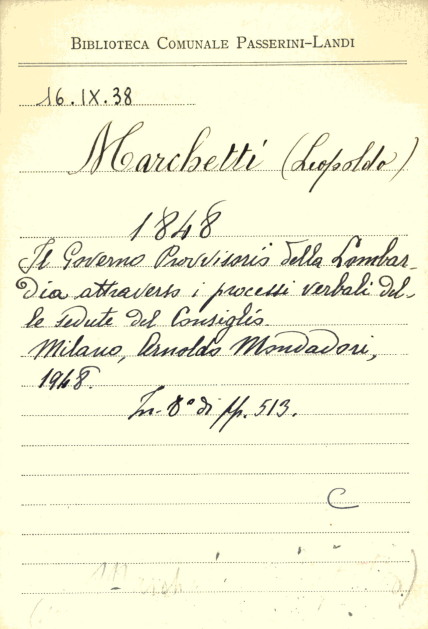 BIBLIOTECA COMUNALE PASSERINI-LANDI
16.IX.38
Marchetti (Leopoldo)
1848
Il Governo Provvisorio della Lombar-
dia attraverso i processi verbali del-
le sedute del Consiglio.
Milano, Arnoldo Mondadori,
1948.
In-8° di pp. 513.
C